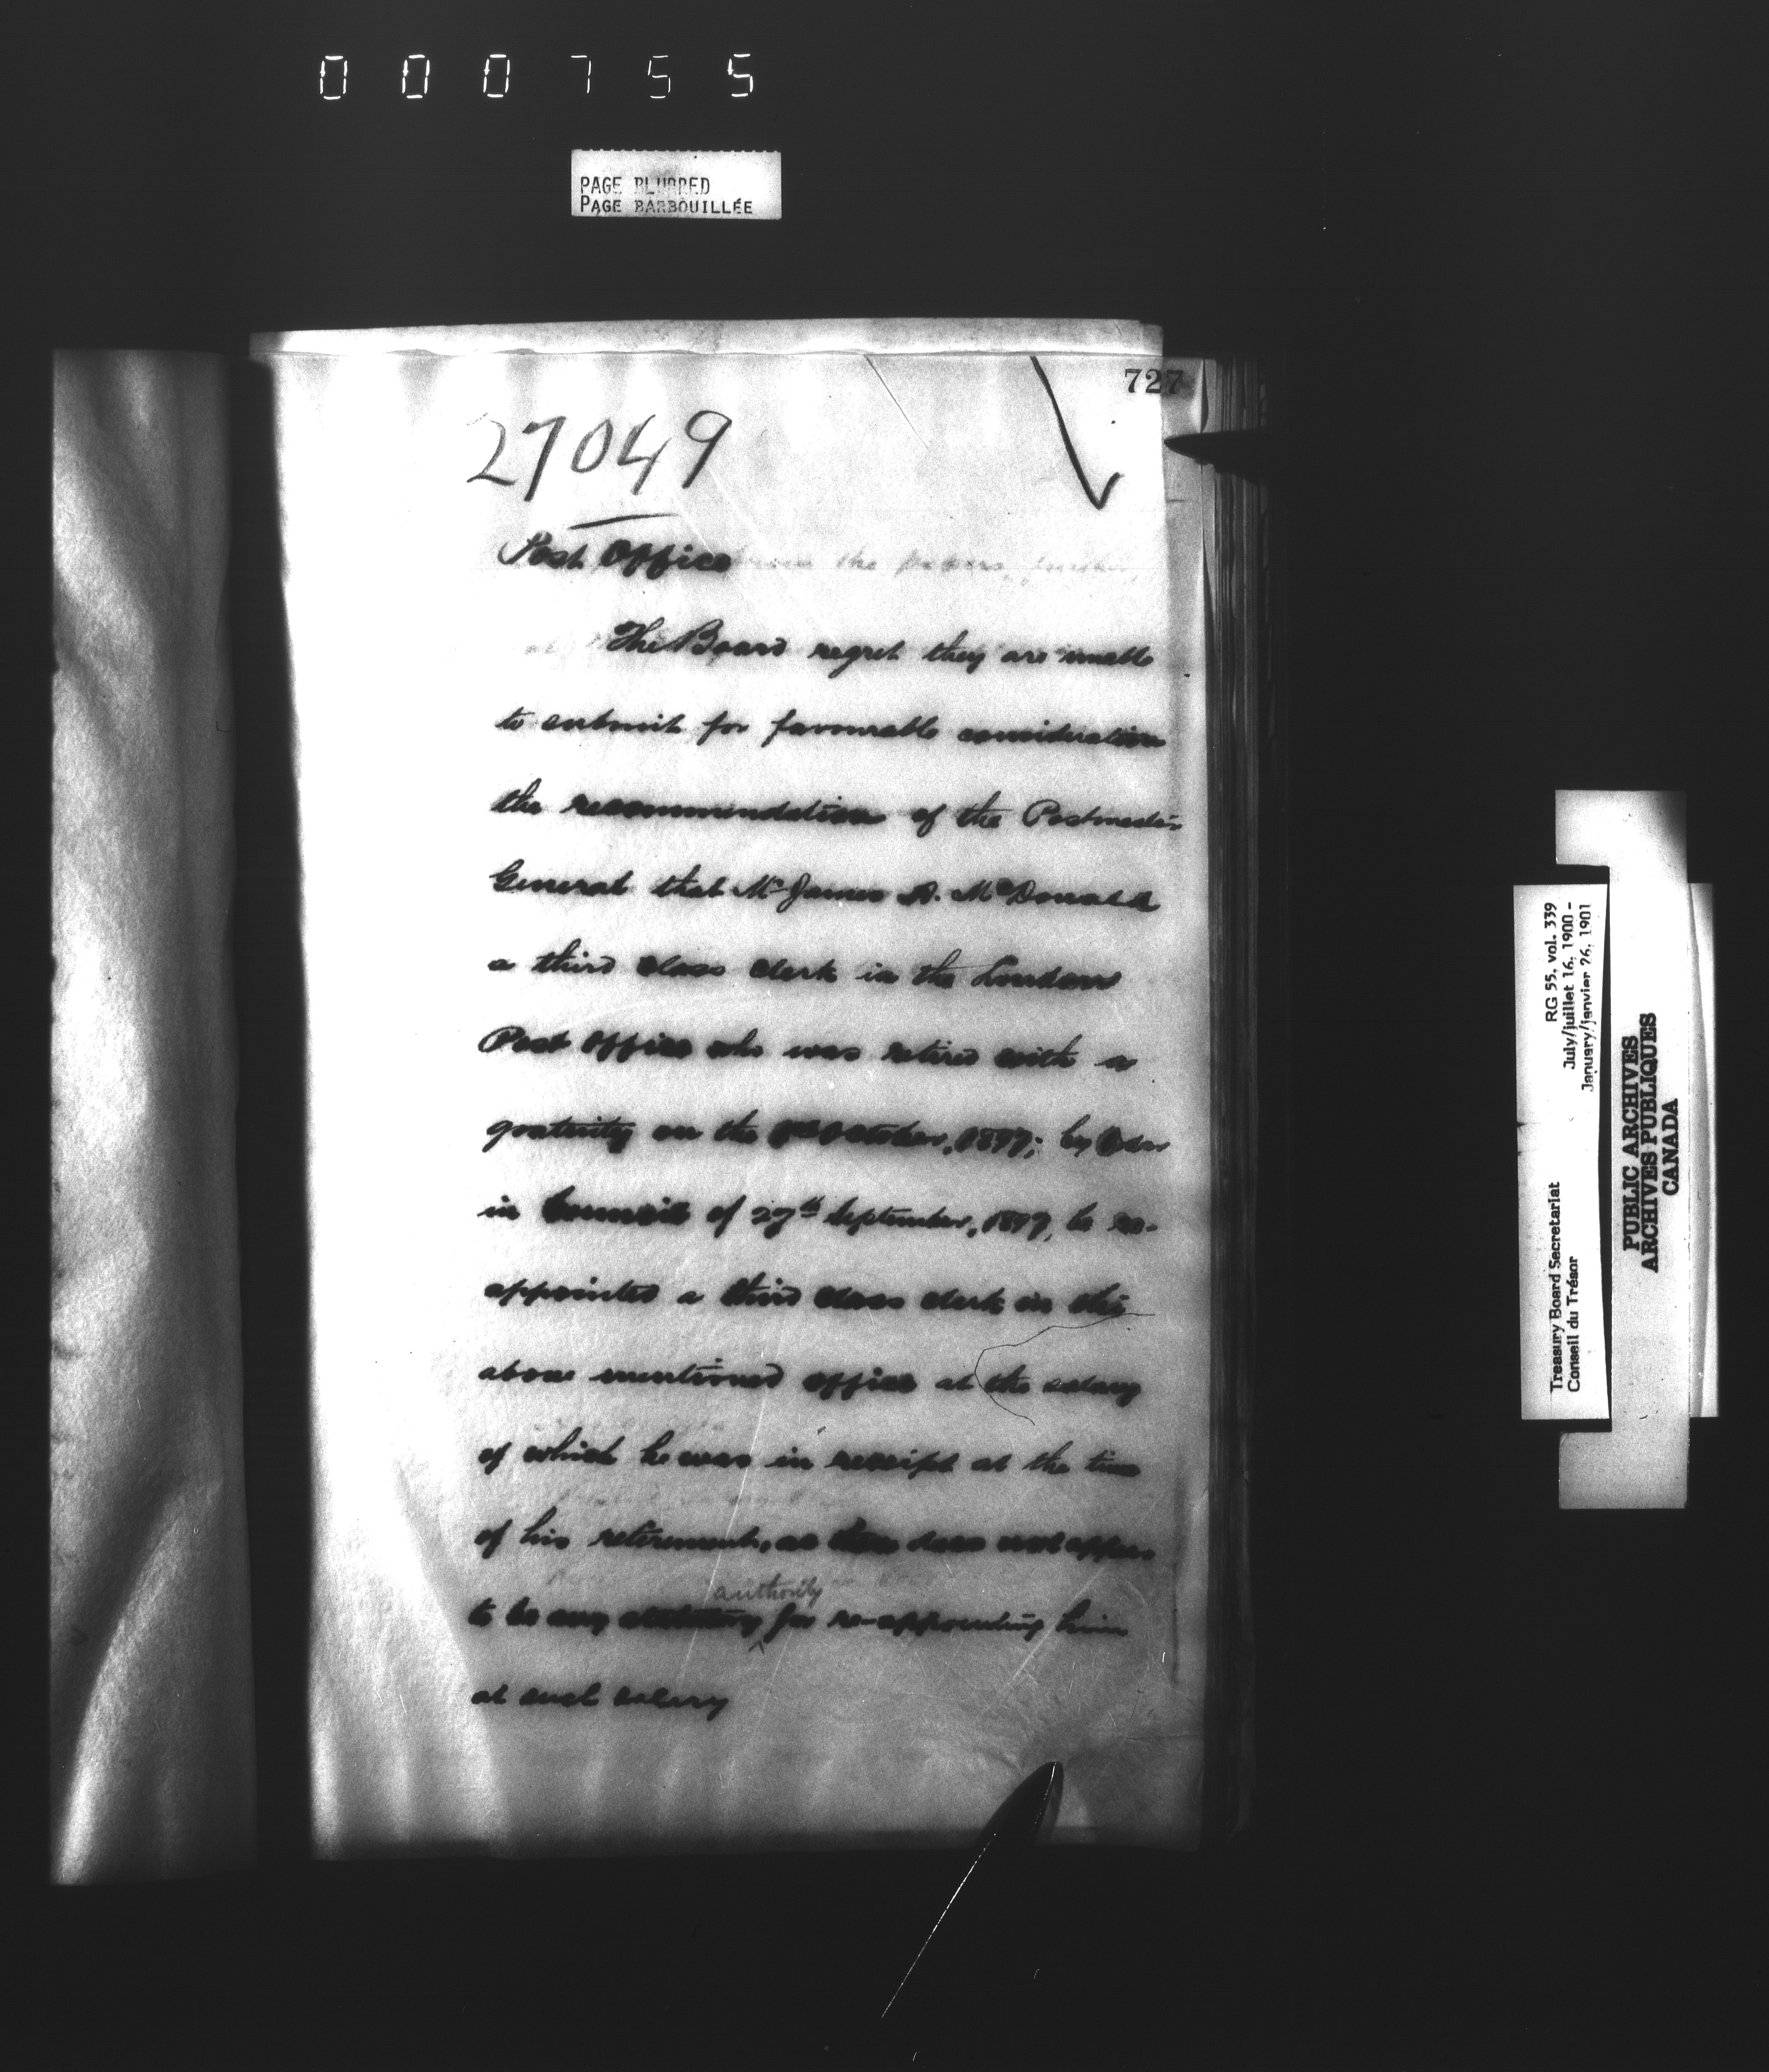 000755
PAGE BLURRED
PAGE BARBOUILLÉE
727
27049
Post Office
The Board regret they are unable
to submit for favourable consideration
the recommendation of the Postmaster
General that Mr James A. McDonald
a third class clerk in the London
Post Office who was retired with a
gratuity on the October, 1897; by Order
in Council of 27th September, 1897, be re-
appointed a third class clerk in the
above mentioned office at the salary
of which he was in receipt at the time
of his retirement, as there does not appear
authority
to be any statutory for re-appointing him
at such salary
Treasury Board Secretariat RG 55, vol. 339
Conseil du Trésor July/juillet 16, 1900 -
January/janvier 26, 1901
PUBLIC ARCHIVES
ARCHIVES PUBLIQUES
CANADA